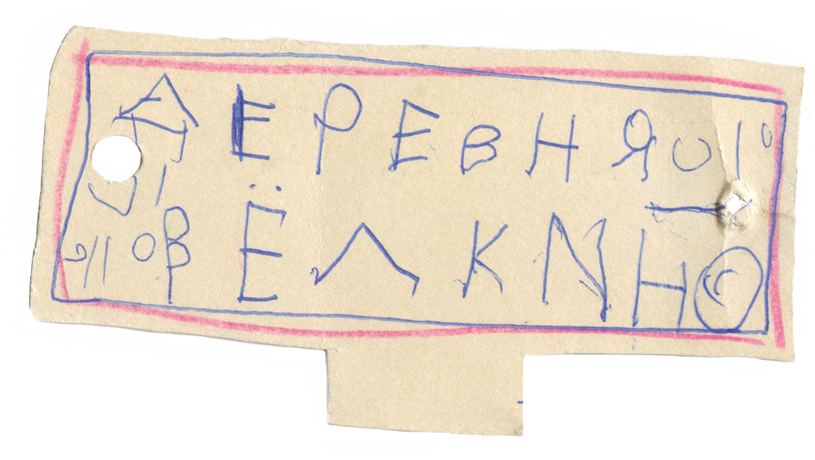 ДЕРЕВНЯ
ЁЛКNНО